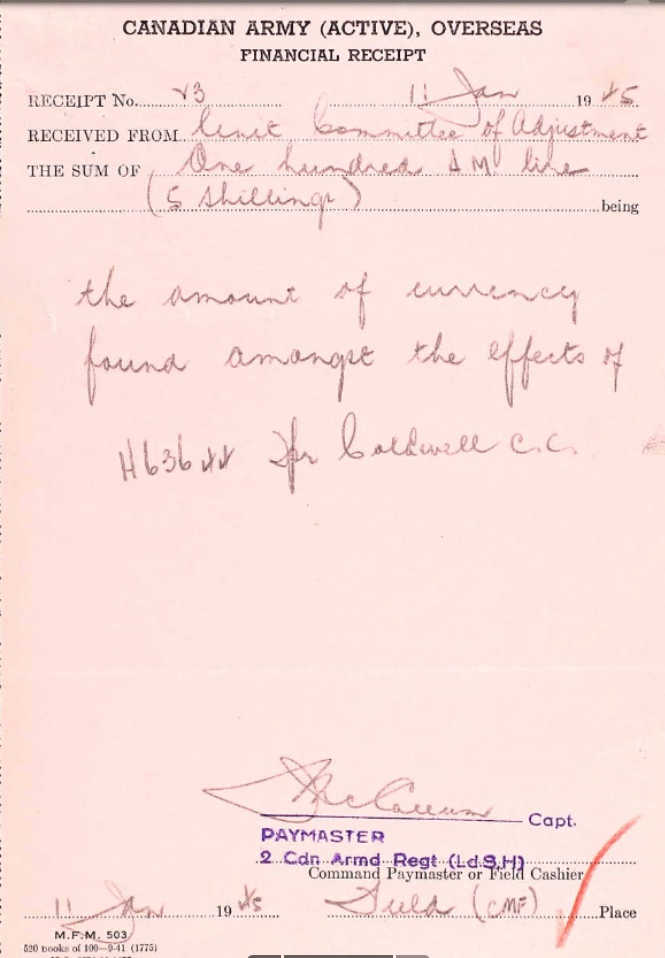 CANADIAN ARMY (ACTIVE), OVERSEAS
FINANCIAL RECEIPT
RECEIPT No. 43 11 Jan 19 45
RECEIVED FROM Unit Committee of Adjustment
THE SUM OF One hundred A M lire
(5 shillings) being
the amount of currency
found amongst the effects of
H63644 Tpr Coldwell C.C.
Capt.
PAYMASTER
2 Cdn Armd Regt (Ld.S.H)
Command Paymaster or Field Cashier
11 Jan 19 45 Field (CMF) Place
M.F.M. 503
520 books of 100—9-41 (1775)